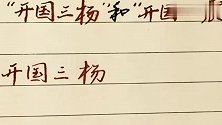 “开国三杨”和“开国
开国三杨